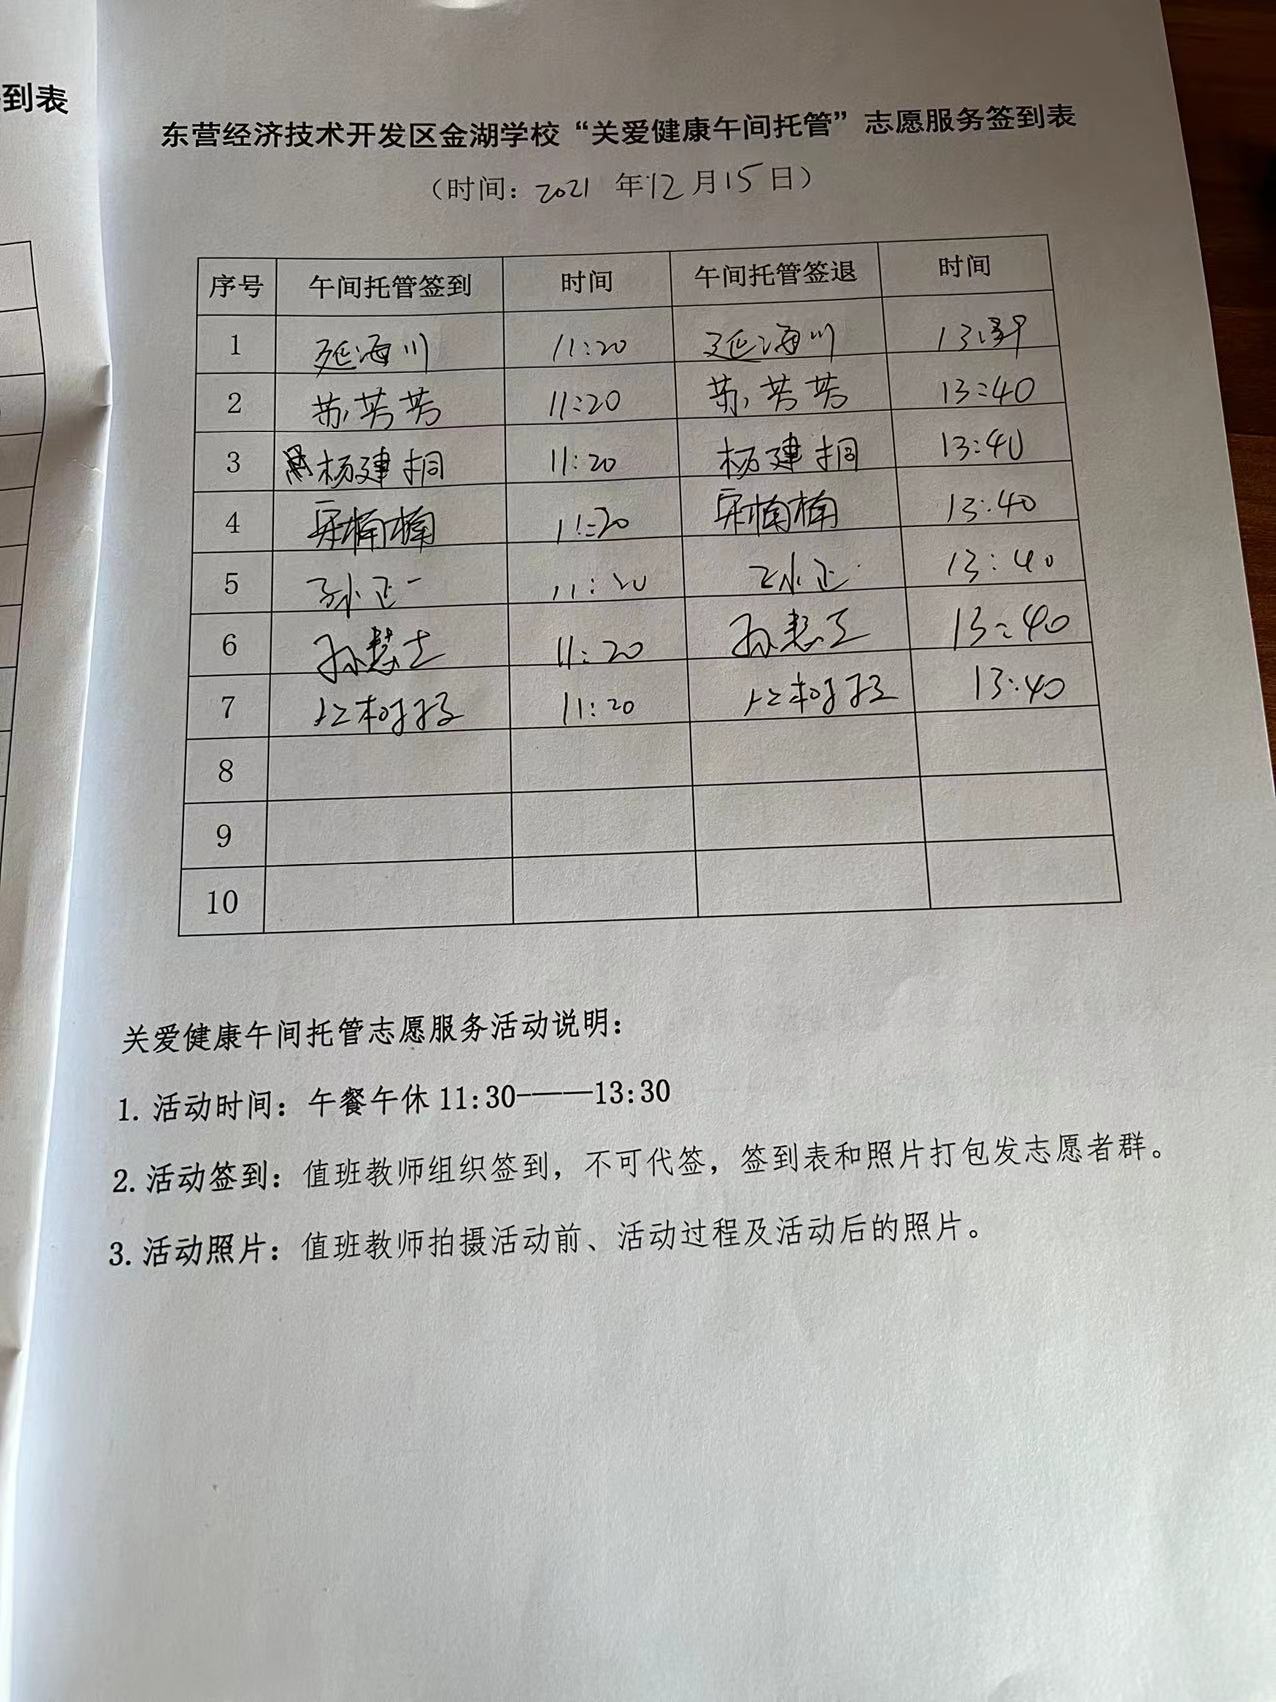 到表
东营经济技术开发区金湖学校“关爱健康午间托管”志愿服务签到表
（时间：2021 年12月15日）
序号 午间托管签到 时间 午间托管签退 时间
1 延海川 11:20 延海川
2 苏芳芳 11:20 苏芳芳 13:40
3 杨建桐 11:20 杨建桐 13:40
4 宋楠楠 11:20 宋楠楠 13:40
5 孙正一 11:20 孙正一 13:40
6 11:20 13:40
7 11:20 13:40
8
9
10
关爱健康午间托管志愿服务活动说明：
1. 活动时间：午餐午休 11:30-——13:30
2. 活动签到：值班教师组织签到，不可代签，签到表和照片打包发志愿者群。
3. 活动照片：值班教师拍摄活动前、活动过程及活动后的照片。